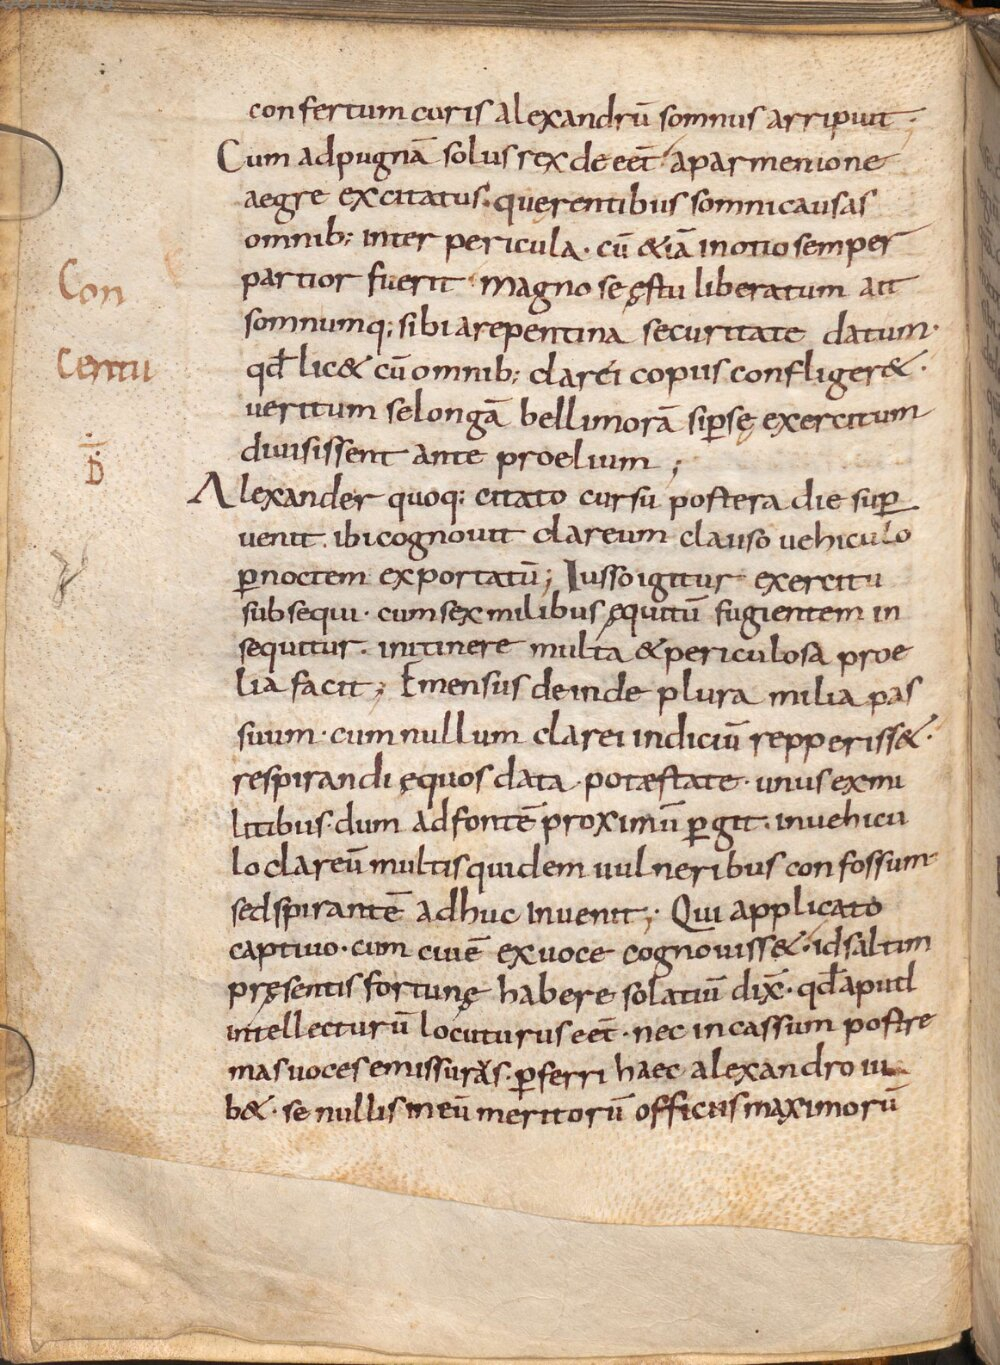 confertum curis alexandrū somnus arripuit.
Cum ad pugnā solus rex deeēt a parmenione
aegre excitatus. querentibus somni causas
omnib; inter pericula. cū &iā in otio semper
partior fuerit magno se ęstu liberatum ait
somnumq; sibi a repentina securitate datum.
qđ lic& cū omnib; clarei copiis confliger&.
Con
ueritum se longā belli morā si ꝑsę exercitum
centu
diuisissent ante proelium;
D
Alexander quoq; citato cursu postera die suꝑ
uenit. ibi cognouit dareum clauso uehiculo
ꝑ noctem exportatū; Iusso igitur exercitu
subsequi. cum sex milibus ęquitū fugientem in
sequitur. in itinere multa & periculosa proe
lia facit; Emensus deinde plura milia pas
suum. cum nullum clarei indiciū repperiss&.
respirandi ęquos data potæstate. unus ex mi
litibus. dum ad fontē proximū ꝑgit. in uehicu
lo clareū multis quidem uulneribus confossum
sed spirantē adhuc inuenit; Qui applicato
captiuo. cum ciuē ex uoce cognouiss&. id saltim
pręsentis fortunę habere solatiū dix̄. qđ aput
intellecturū locuturus eēt. nec incassum postre
mas uoces emissuras. ꝑferri haec alexandro iu
b&. se nullis in eū meritorū officiis maximorū